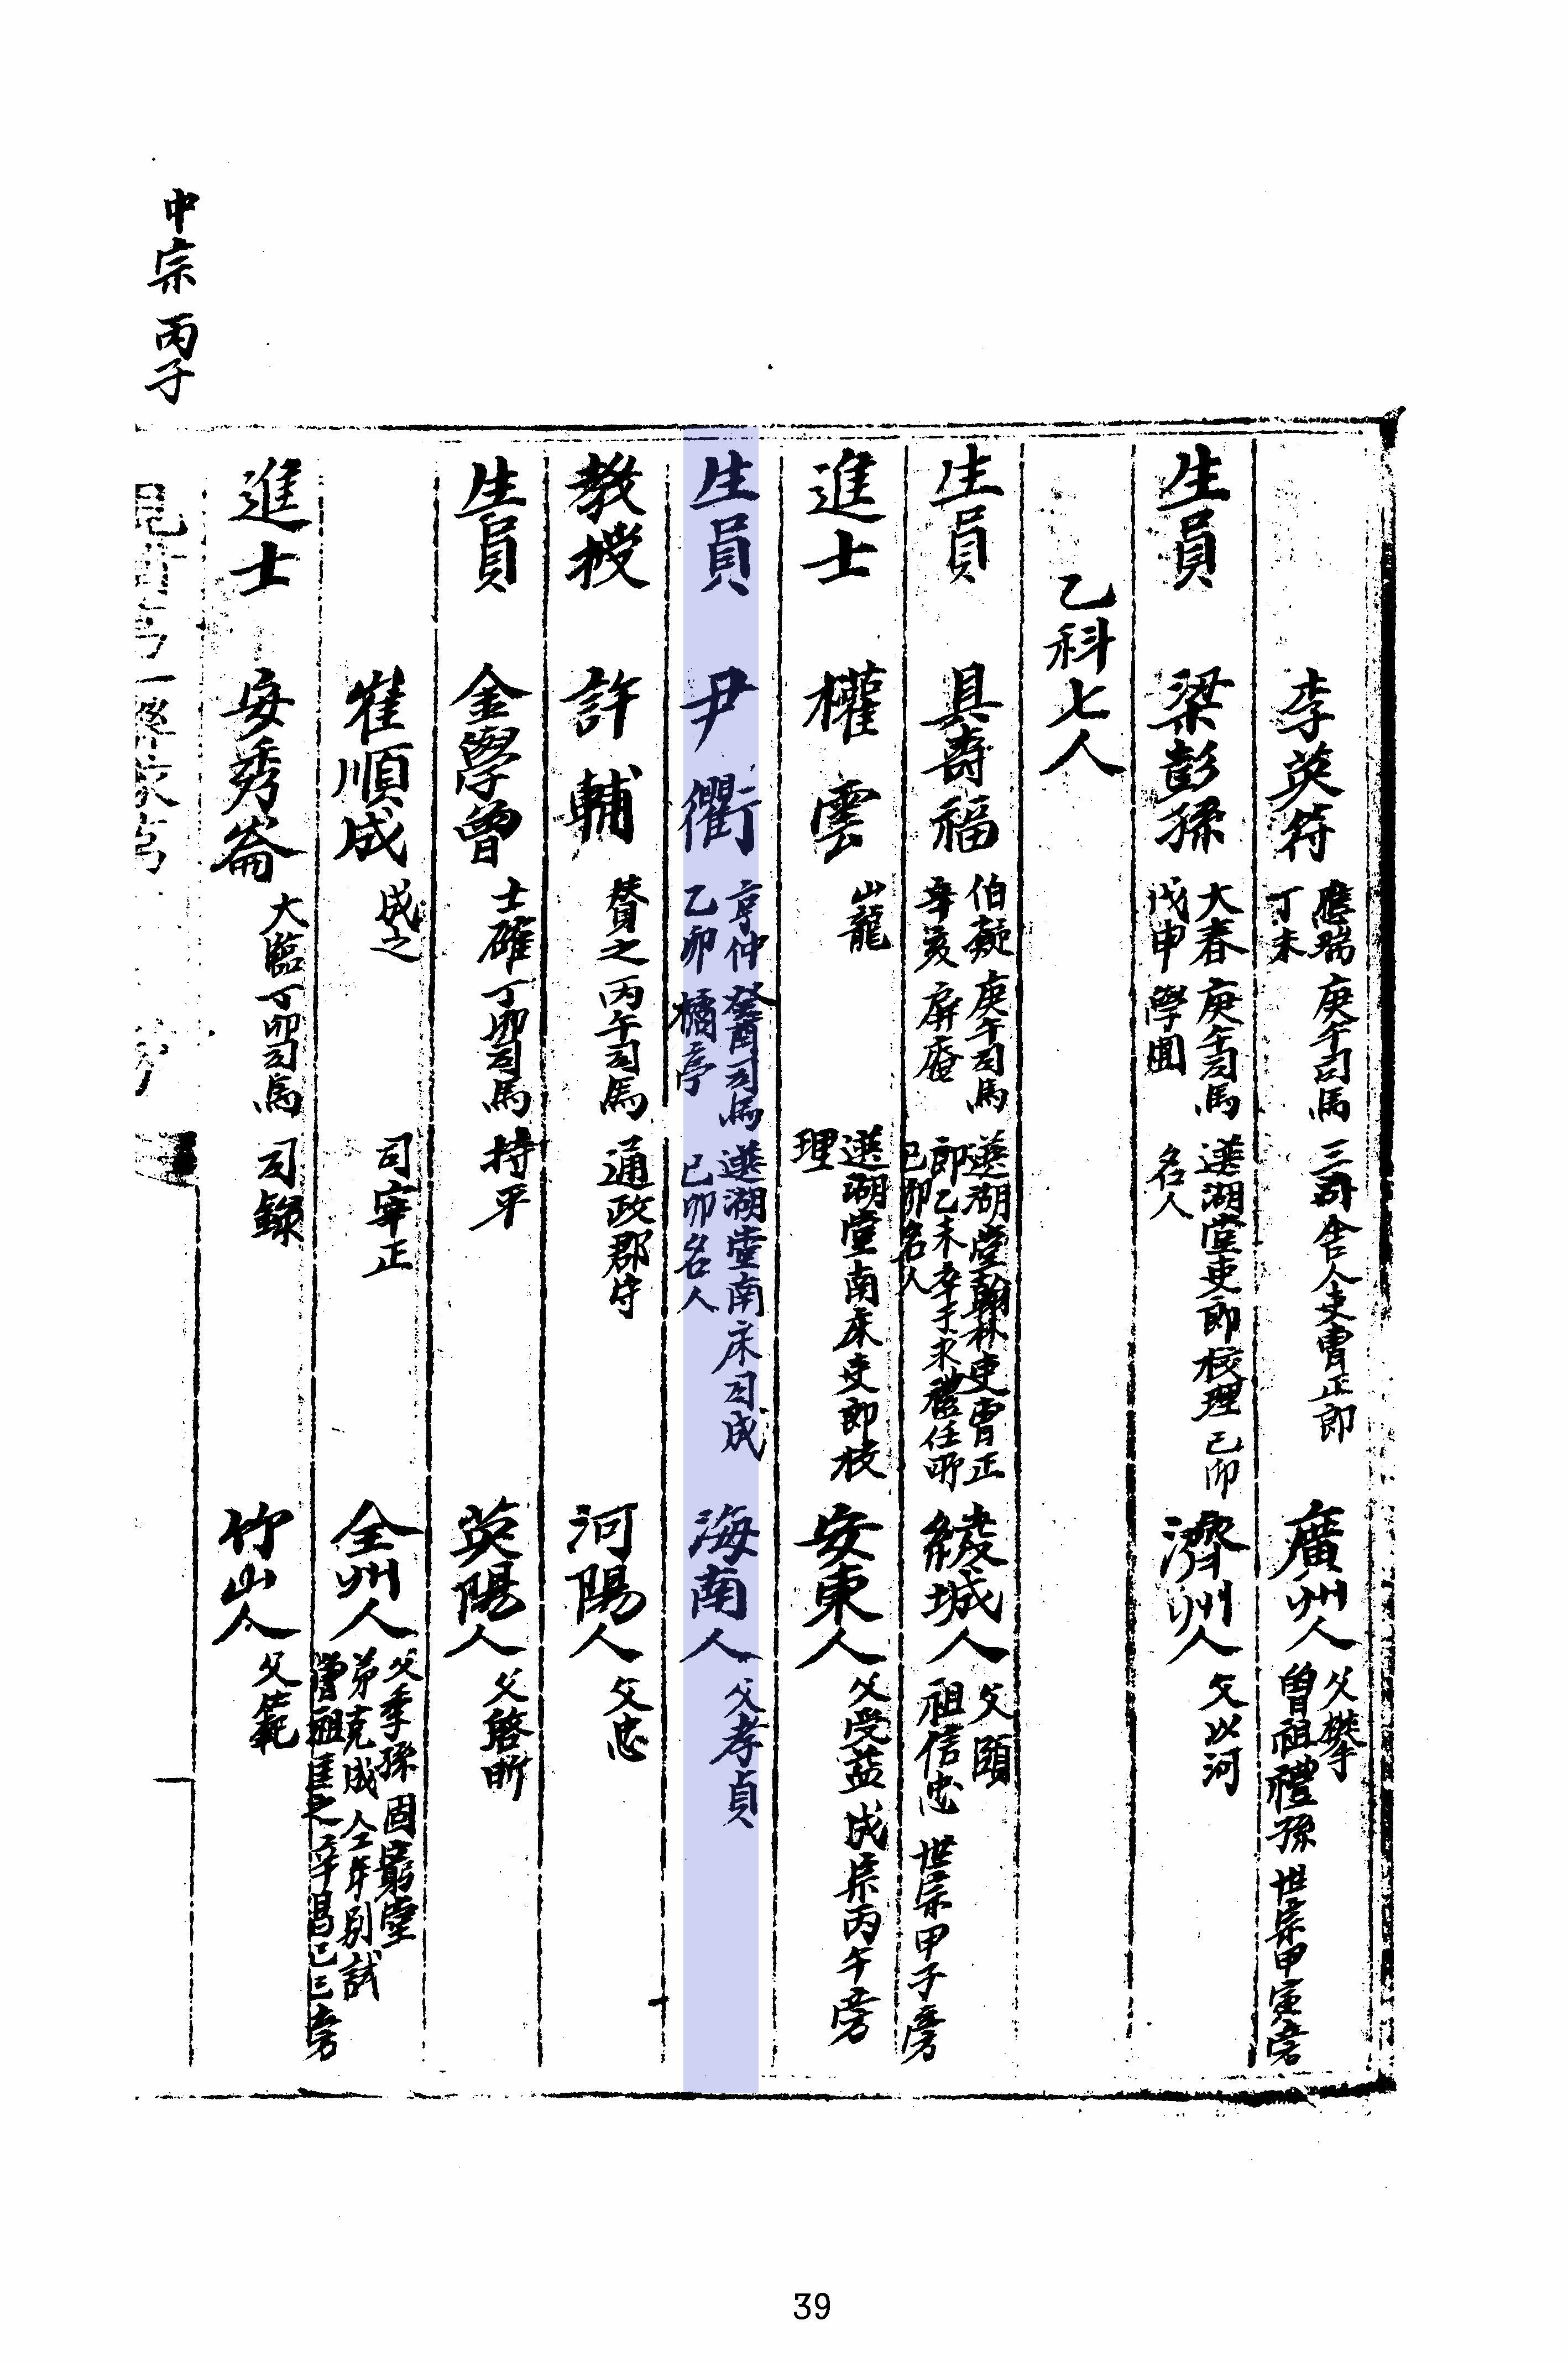 李英符 應瑞 丁未 庚午司馬 三司舍人吏曹正郎 廣州人 父攀 曾祖禮孫 世宗甲寅榜
生員 梁彭孫 大春 戊申 庚午司馬 學圃 選湖堂吏郎校理己卯名人 濟州人 父以河
乙科七人
生員 具壽福 伯凝 辛亥 庚午司馬 屏庵 選湖堂翰林吏曹正郎乙未卒于求禮任所己卯名人 綾城人 父頤 祖信忠 世宗甲子榜
進士 權雲 山龍 選湖堂南床吏郎校理 安東人 父受益 成宗丙午榜
生員 尹衢 亨仲 乙卯 癸酉司馬 橘亭 選湖堂南床司成 己卯名人 海南人 父孝貞
教授 許輔 賛之 丙午司馬 通政郡守 河陽人 父忠
生員 金學曾 士確 丁卯司馬 持平 英陽人 父啓昕
崔順成 成之 司宰正 全州人 父季孫 固窮堂 弟克成 仝年別試 曾祖匡之 辛昌己巳榜
進士 安秀崙 大臨 丁卯司馬 司錄 竹山人 父範
中宗 丙子
39